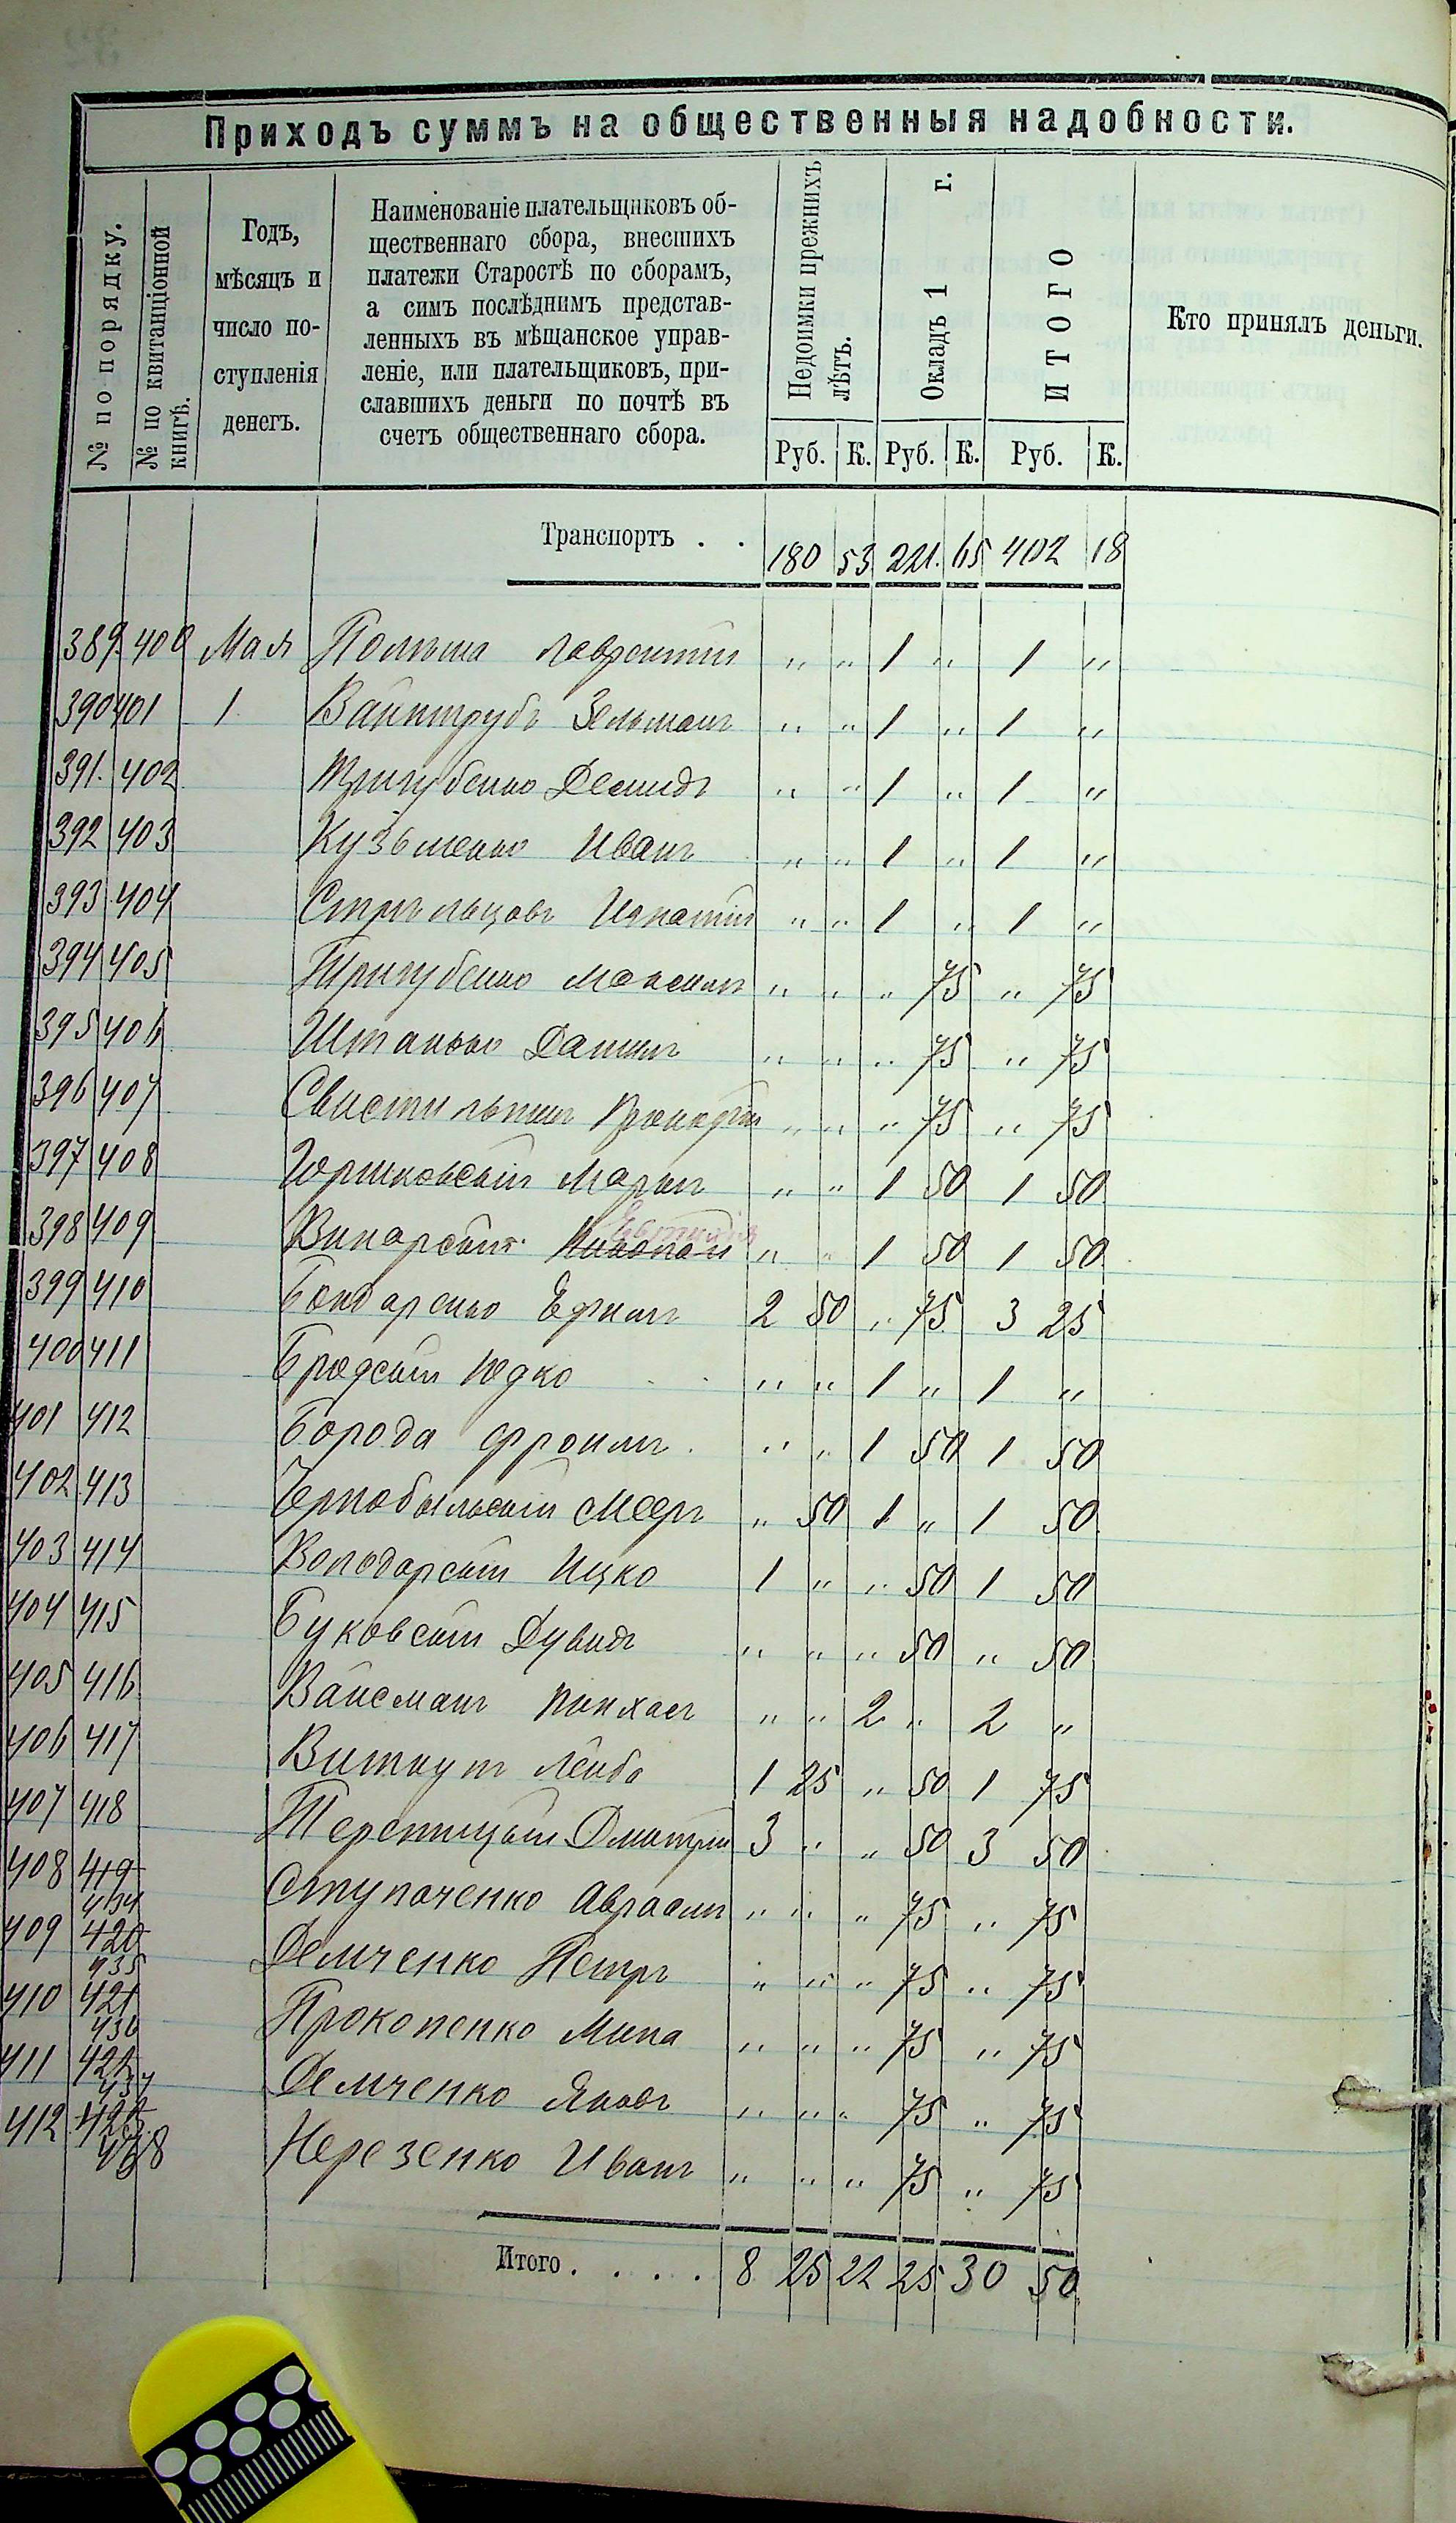 Приходъ суммъ на общественныя надобности.
№ по порядку.
№ по квитанціонной книгѣ.
Годъ,
мѣсяцъ и
число по-
ступленія
денегъ.
Наименованіе плательщиковъ об-
щественнаго сбора, внесшихъ
платежи Старостѣ по сборамъ,
а симъ послѣднимъ представ-
ленныхъ въ мѣщанское управ-
леніе, или плательщиковъ, при-
славшихъ деньги по почтѣ въ
счетъ общественнаго сбора.
Недоимки прежнихъ лѣтъ.
Окладъ 1 г.
ИТОГО
Кто принялъ деньги.
Руб. К. Руб. К. Руб. К.
Транспортъ . . 180 53 221. 65 402 18
389. 400 Мая Польша Лаврентій „ „ 1 „ 1 „
390 401 1 Вайнтрубъ Зельманъ „ „ 1 „ 1 „
391. 402 Тригубенко Демидъ „ „ 1 „ 1 „
392 403 Кузьменко Иванъ „ „ 1 „ 1 „
393 404 Стрѣльцовъ Игнатій „ „ 1 „ 1 „
394 405 Тригубенко Максимъ „ „ „ 75 „ 75
395 406 Штанько Данилъ „ „ „ 75 „ 75
396 407 Свистильникъ Прокофій „ „ „ 75 „ 75
397 408 Юришковскій Маркъ „ „ 1 50 1 50
398 409 Винарскій „ „ 1 50 1 50
399 410 Бондаренко Ефимъ 2 50 „ 75 3 25
400 411 Бродскій Юдко „ „ 1 „ 1 „
401 412 Борода Фроимъ „ „ 1 50 1 50
402 413 Чернобыльскій Мееръ „ 50 1 „ 1 50
403 414 Володарскій Ицко 1 „ „ 50 1 50
404 415 Буковскій Дувидъ „ „ „ 50 „ 50
405 416 Вайсманъ Пинхасъ „ „ 2 „ 2 „
406 417 Виткупъ Лейба 1 25 „ 50 1 75
407 418 Дмитрій 3 „ „ 50 3 50
408 419 Ступаченко Авраамъ „ „ „ 75 „ 75
434
409 420 Демченко Петръ „ „ „ 75 „ 75
435
410 421 Прокопенко Мина „ „ „ 75 „ 75
436
411 422 Демченко Яковъ „ „ „ 75 „ 75
437
412 423 Нерезенко Иванъ „ „ „ 75 „ 75
438
Итого . . . . 8 25 22 25 30 50